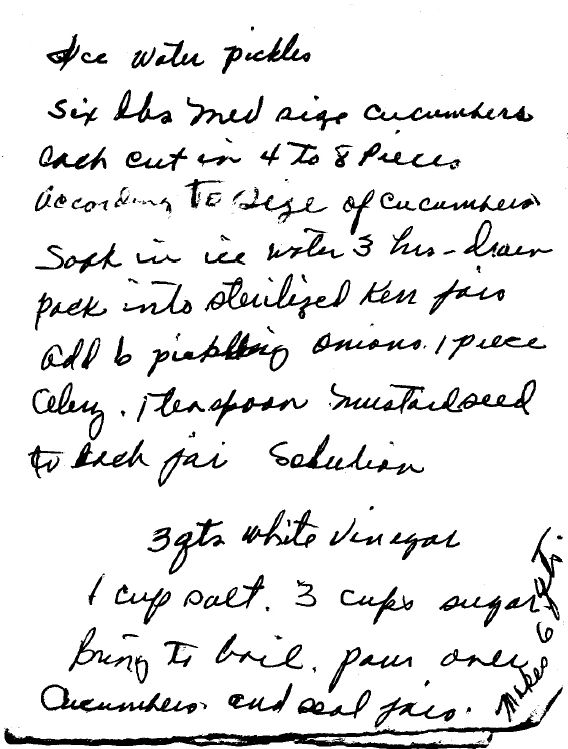 Ice water pickles
Six lbs med size cucumbers
each cut in 4 to 8 Pieces
According To Size of cucumbers
Soak in ice water 3 hrs - drain
pack into sterilized Kerr jars
add 6 pickling onions. 1 piece
Celery. 1 teaspoon mustard seed
to each jar Solution
3 qts white vinegar
1 cup salt. 3 cups sugar
Bring to boil. pour over
Cucumbers and seal jars.
Makes 6 qts.